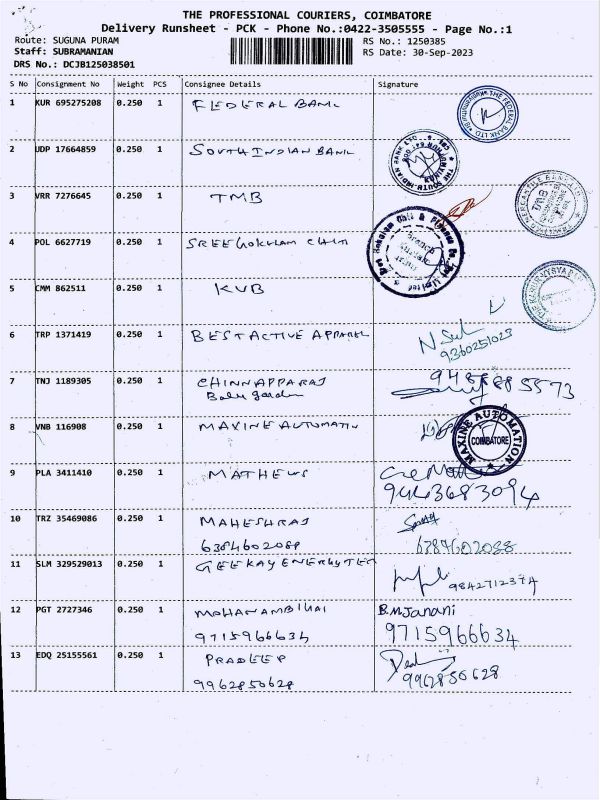 THE PROFESSIONAL COURIERS, COIMBATORE
Delivery Runsheet - PCK - Phone No.:0422-3505555 - Page No.:1
Route: SUGUNA PURAM RS No.: 1250385
Staff: SUBRAMANIAN RS Date: 30-Sep-2023
DRS No.: DCJB125038501
S No Consignment No Weight PCS Consignee Details Signature
1 KUR 695275208 0.250 1 FEDERAL BANK
THE FEDERAL BANK LTD
2 UDP 17664859 0.250 1 SOUTH INDIAN BANK
THE SOUTH INDIAN BANK LTD
3 VRR 7276645 0.250 1 TMB
TMB
4 POL 6627719 0.250 1 SREE GOKULAM CHIT
5 CMM 862511 0.250 1 KVB
6 TRP 1371419 0.250 1 BEST ACTIVE APPAREL
9360251023
7 TNJ 1189305 0.250 1 CHINNAPPARAJ
Balu garden
8 VNB 116908 0.250 1 MAXINE AUTOMATIN
MAXINE AUTOMATION
COIMBATORE
9 PLA 3411410 0.250 1 MATHEWS
9443683094
10 TRZ 35469086 0.250 1 MAHESHRAJ
6384602088 6384602088
11 SLM 329529013 0.250 1 GEEKAY ENERGYTEC
12 PGT 2727346 0.250 1 MOHANAMBIKAI B.M.Janani
9715966634 9715966634
13 EDQ 25155561 0.250 1 PRADEEP
9962850628 9962850628